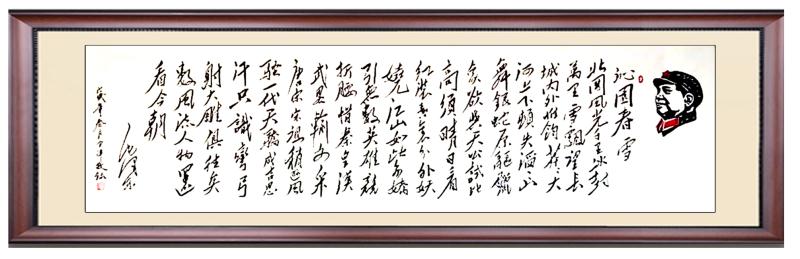 沁園春雪
北國风光千里冰封
萬里雪飄望长
城内外惟馀莽莽大
河上下顿失滔滔山
舞银蛇原驱蠟
象欲与天公试比
高须晴日看
红装素裹分外妖
娆江山如此多娇
引无数英雄競
折腰惜秦皇漢
武略输文采
唐宗宋祖稍逊风
骚一代天骄成吉思
汗只識彎弓
射大雕俱往矣
数风流人物还
看今朝
毛泽东